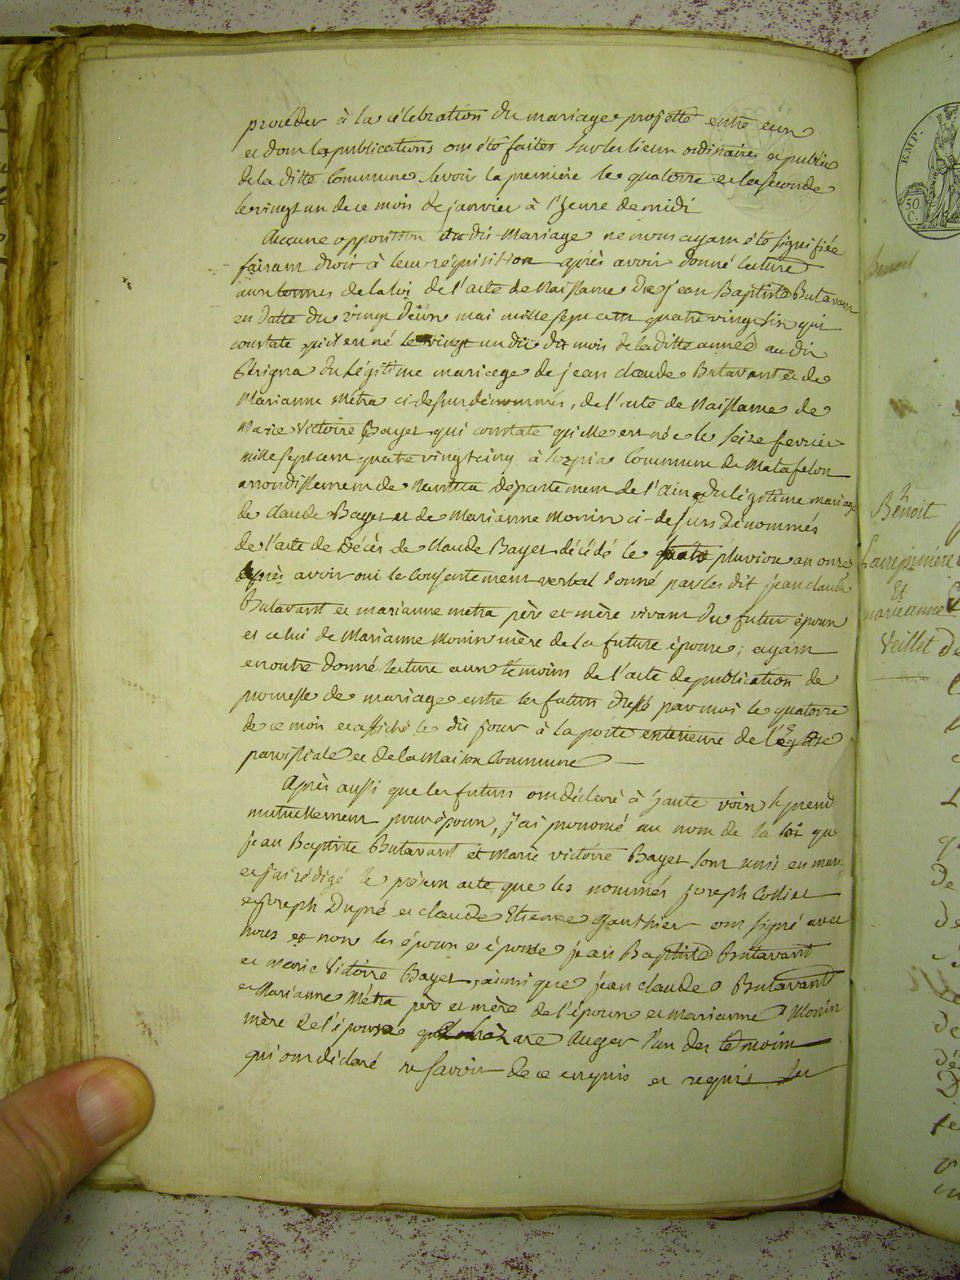 procéder à la célébration du mariage projetté entre eux
et dont les publications ont été faites sur les lieux ordinaires et publics
de la ditte Commune, savoir la premiere le quatorze et la seconde
le vingt un de ce mois de janvier à l'heure de midi
Aucune opposition au dit Mariage ne nous ayant été signifiée
faisant droit à leur réquisition après avoir donné lecture
aux termes de la loi de l'acte de Naissance de jean Baptiste Butavant
en datte du vingt deux mai mille sept cent quatre vingt six qui
constate qu'il est né le vingt un du dit mois de la ditte année au dit
du légitime mariage de jean claude Butavant et de
Marianne Métra ci dessus dénommés, de l'acte de Naissance de
Marie Victoire Bayet qui constate qu'elle est née le seize fevrier
mille sept cent quatre vingt cinq à Commune de Matafelon
arrondissement de Nantua département de l'ain du légitime mariage
de claude Bayet et de Marianne Monin ci-dessus Dénommés
de l'acte de Décès de Claude Bayet décédé le pluviose an onze
après avoir oui le Consentement verbal donné par les dit jean claude
Butavant et marianne metra père et mère vivant du futur époux
et celui de Marianne Monin mère de la future épouse; ayant
en outre donné lecture aux témoins de l'acte de publication de
promesse de mariage entre les futurs dressé par moi le quatorze
de ce mois et affiché le dit jour à la porte exterieure de l'église
paroissiale et de la Maison Commune
Après aussi que les futurs ont déclaré à haute voix se prend
mutuellement pour époux, j'ai prononcé au nom de la loi que
jean Baptiste Butavant et Marie victoire Bayet sont unis en mar
et j'ai rédigé le présent acte que les nommés joseph Collier
et joseph Dupré et claude Etienne Gauthier ont signé avec
nous et non les époux et épouse jean Baptiste Butavant
et marie Victoire Bayet, ainsi que jean claude Butavant
et Marianne Métra père et mère de l'époux et marianne Monin
mère de l'épouse Auger l'un des témoins
qui ont déclaré ne savoir de ce enquis et requis
EMP.
50
C.
Benoit
Benoit
Et
marianne
Veillet